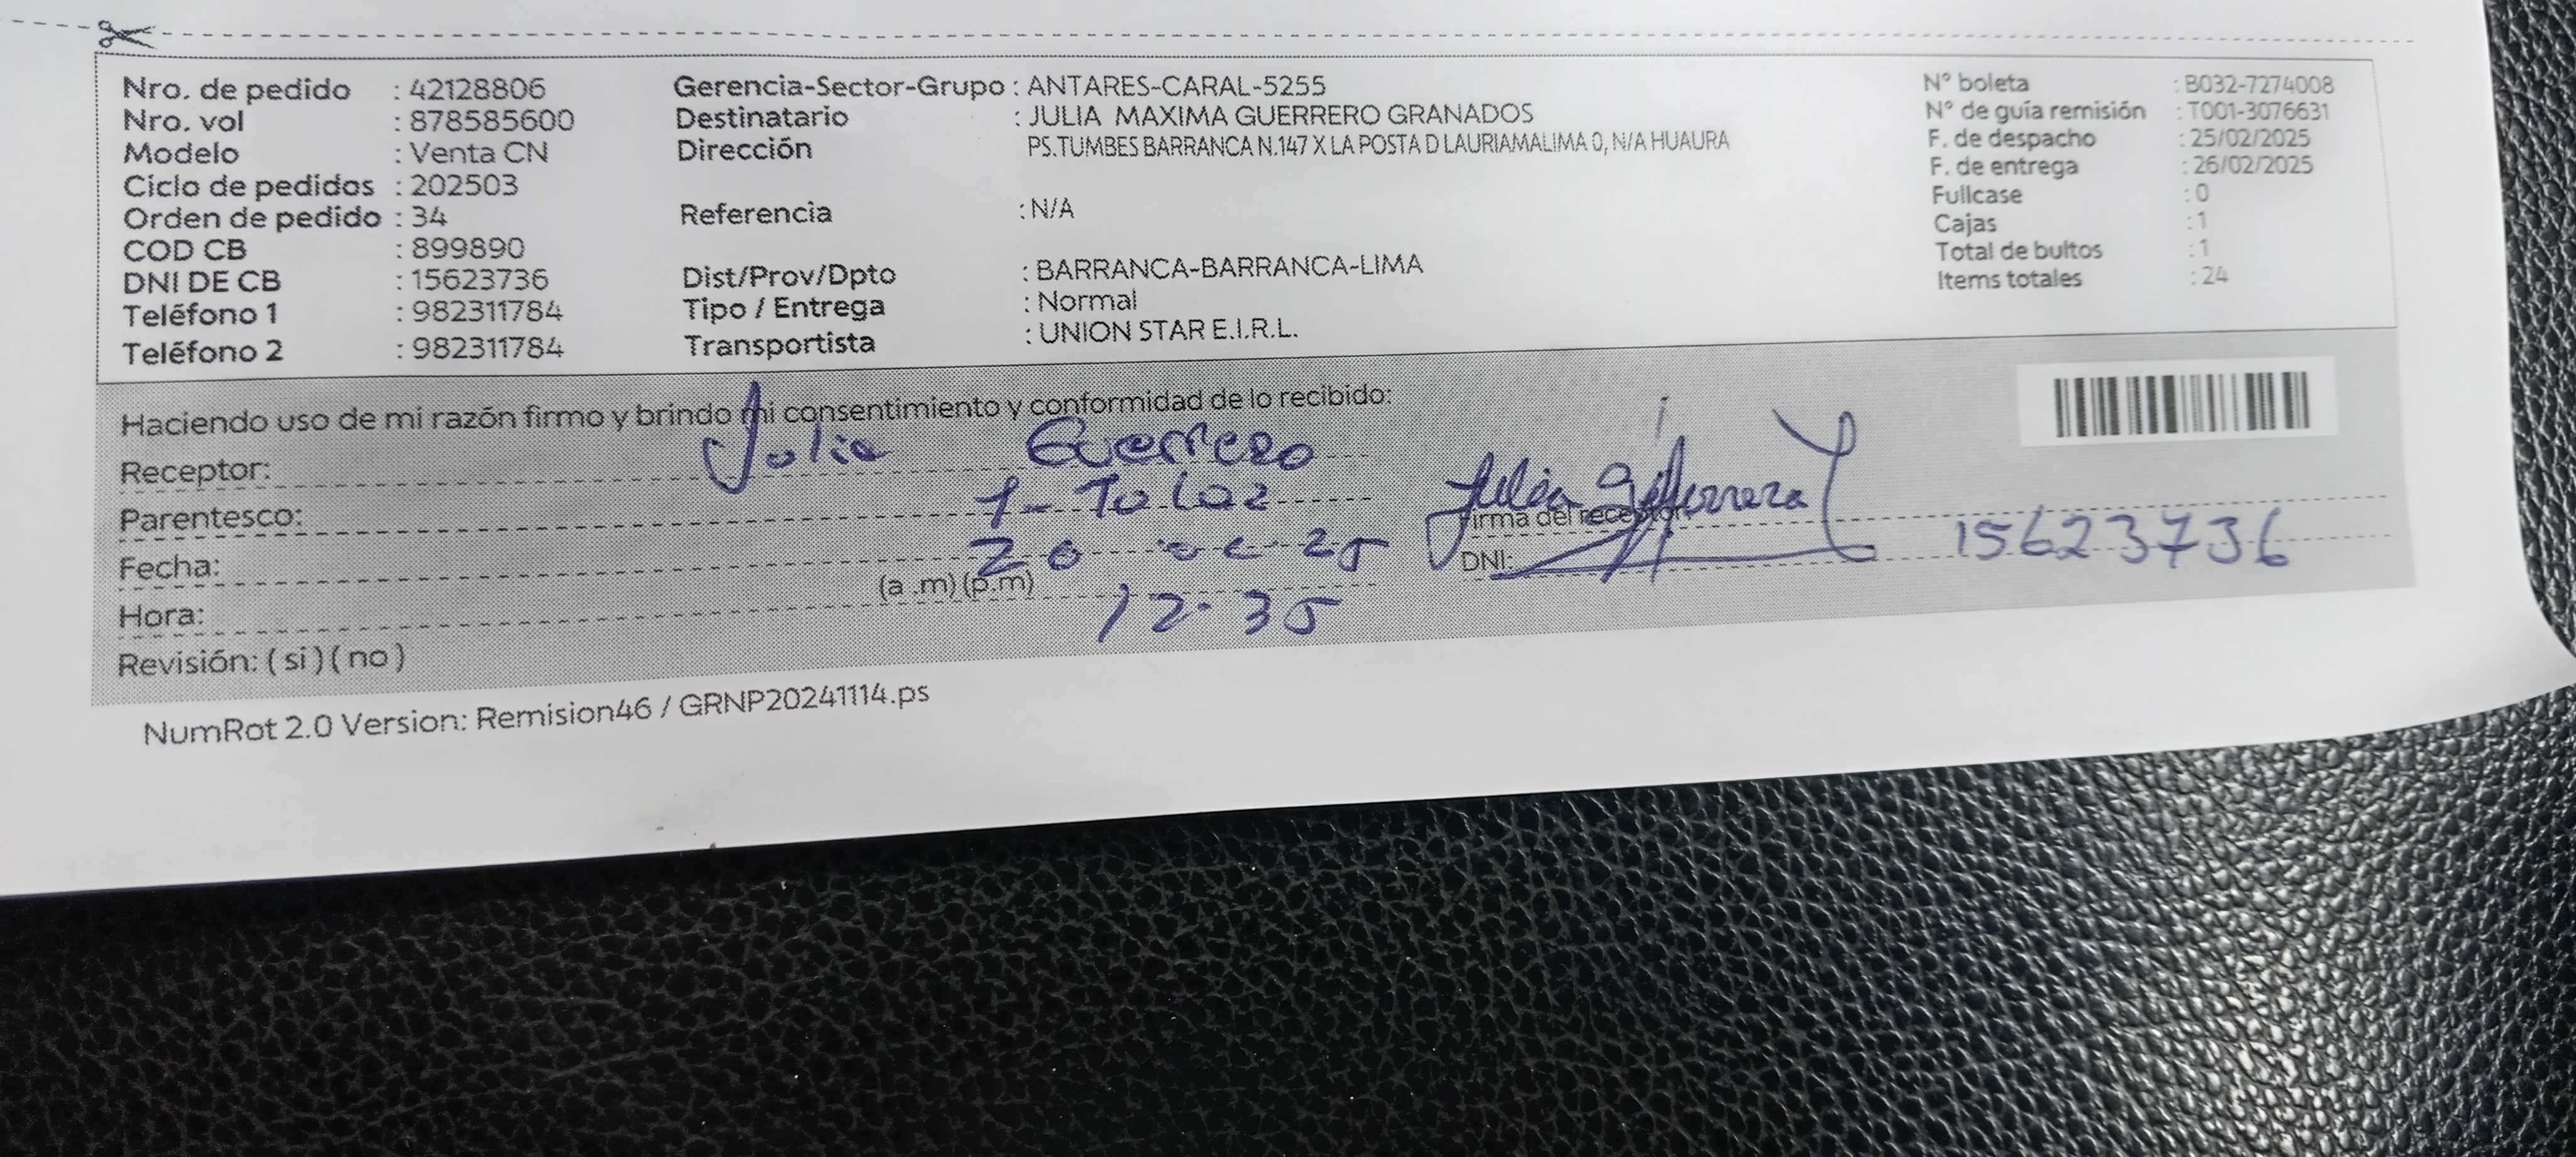 Nro. de pedido : 42128806
Nro. vol : 878585600
Modelo : Venta CN
Ciclo de pedidos : 202503
Orden de pedido : 34
COD CB : 899890
DNI DE CB : 15623736
Teléfono 1 : 982311784
Teléfono 2 : 982311784
Gerencia-Sector-Grupo : ANTARES-CARAL-5255
Destinatario : JULIA MAXIMA GUERRERO GRANADOS
Dirección PS.TUMBES BARRANCA N.147 X LA POSTA D LAURIAMALIMA 0, N/A HUAURA
Referencia : N/A
Dist/Prov/Dpto : BARRANCA-BARRANCA-LIMA
Tipo / Entrega : Normal
Transportista : UNION STAR E.I.R.L.
N° boleta : B032-7274008
N° de guía remisión : T001-3076631
F. de despacho : 25/02/2025
F. de entrega : 26/02/2025
Fullcase : 0
Cajas : 1
Total de bultos : 1
Items totales : 24
Haciendo uso de mi razón firmo y brindo mi consentimiento y conformidad de lo recibido:
Receptor: Julia Guerrero
Parentesco:
Fecha:
Hora: (a .m) (p.m) 12.35
Revisión: ( si ) ( no )
Julia Guerrero
Firma del receptor
DNI: 15623736
NumRot 2.0 Version: Remision46 / GRNP20241114.ps